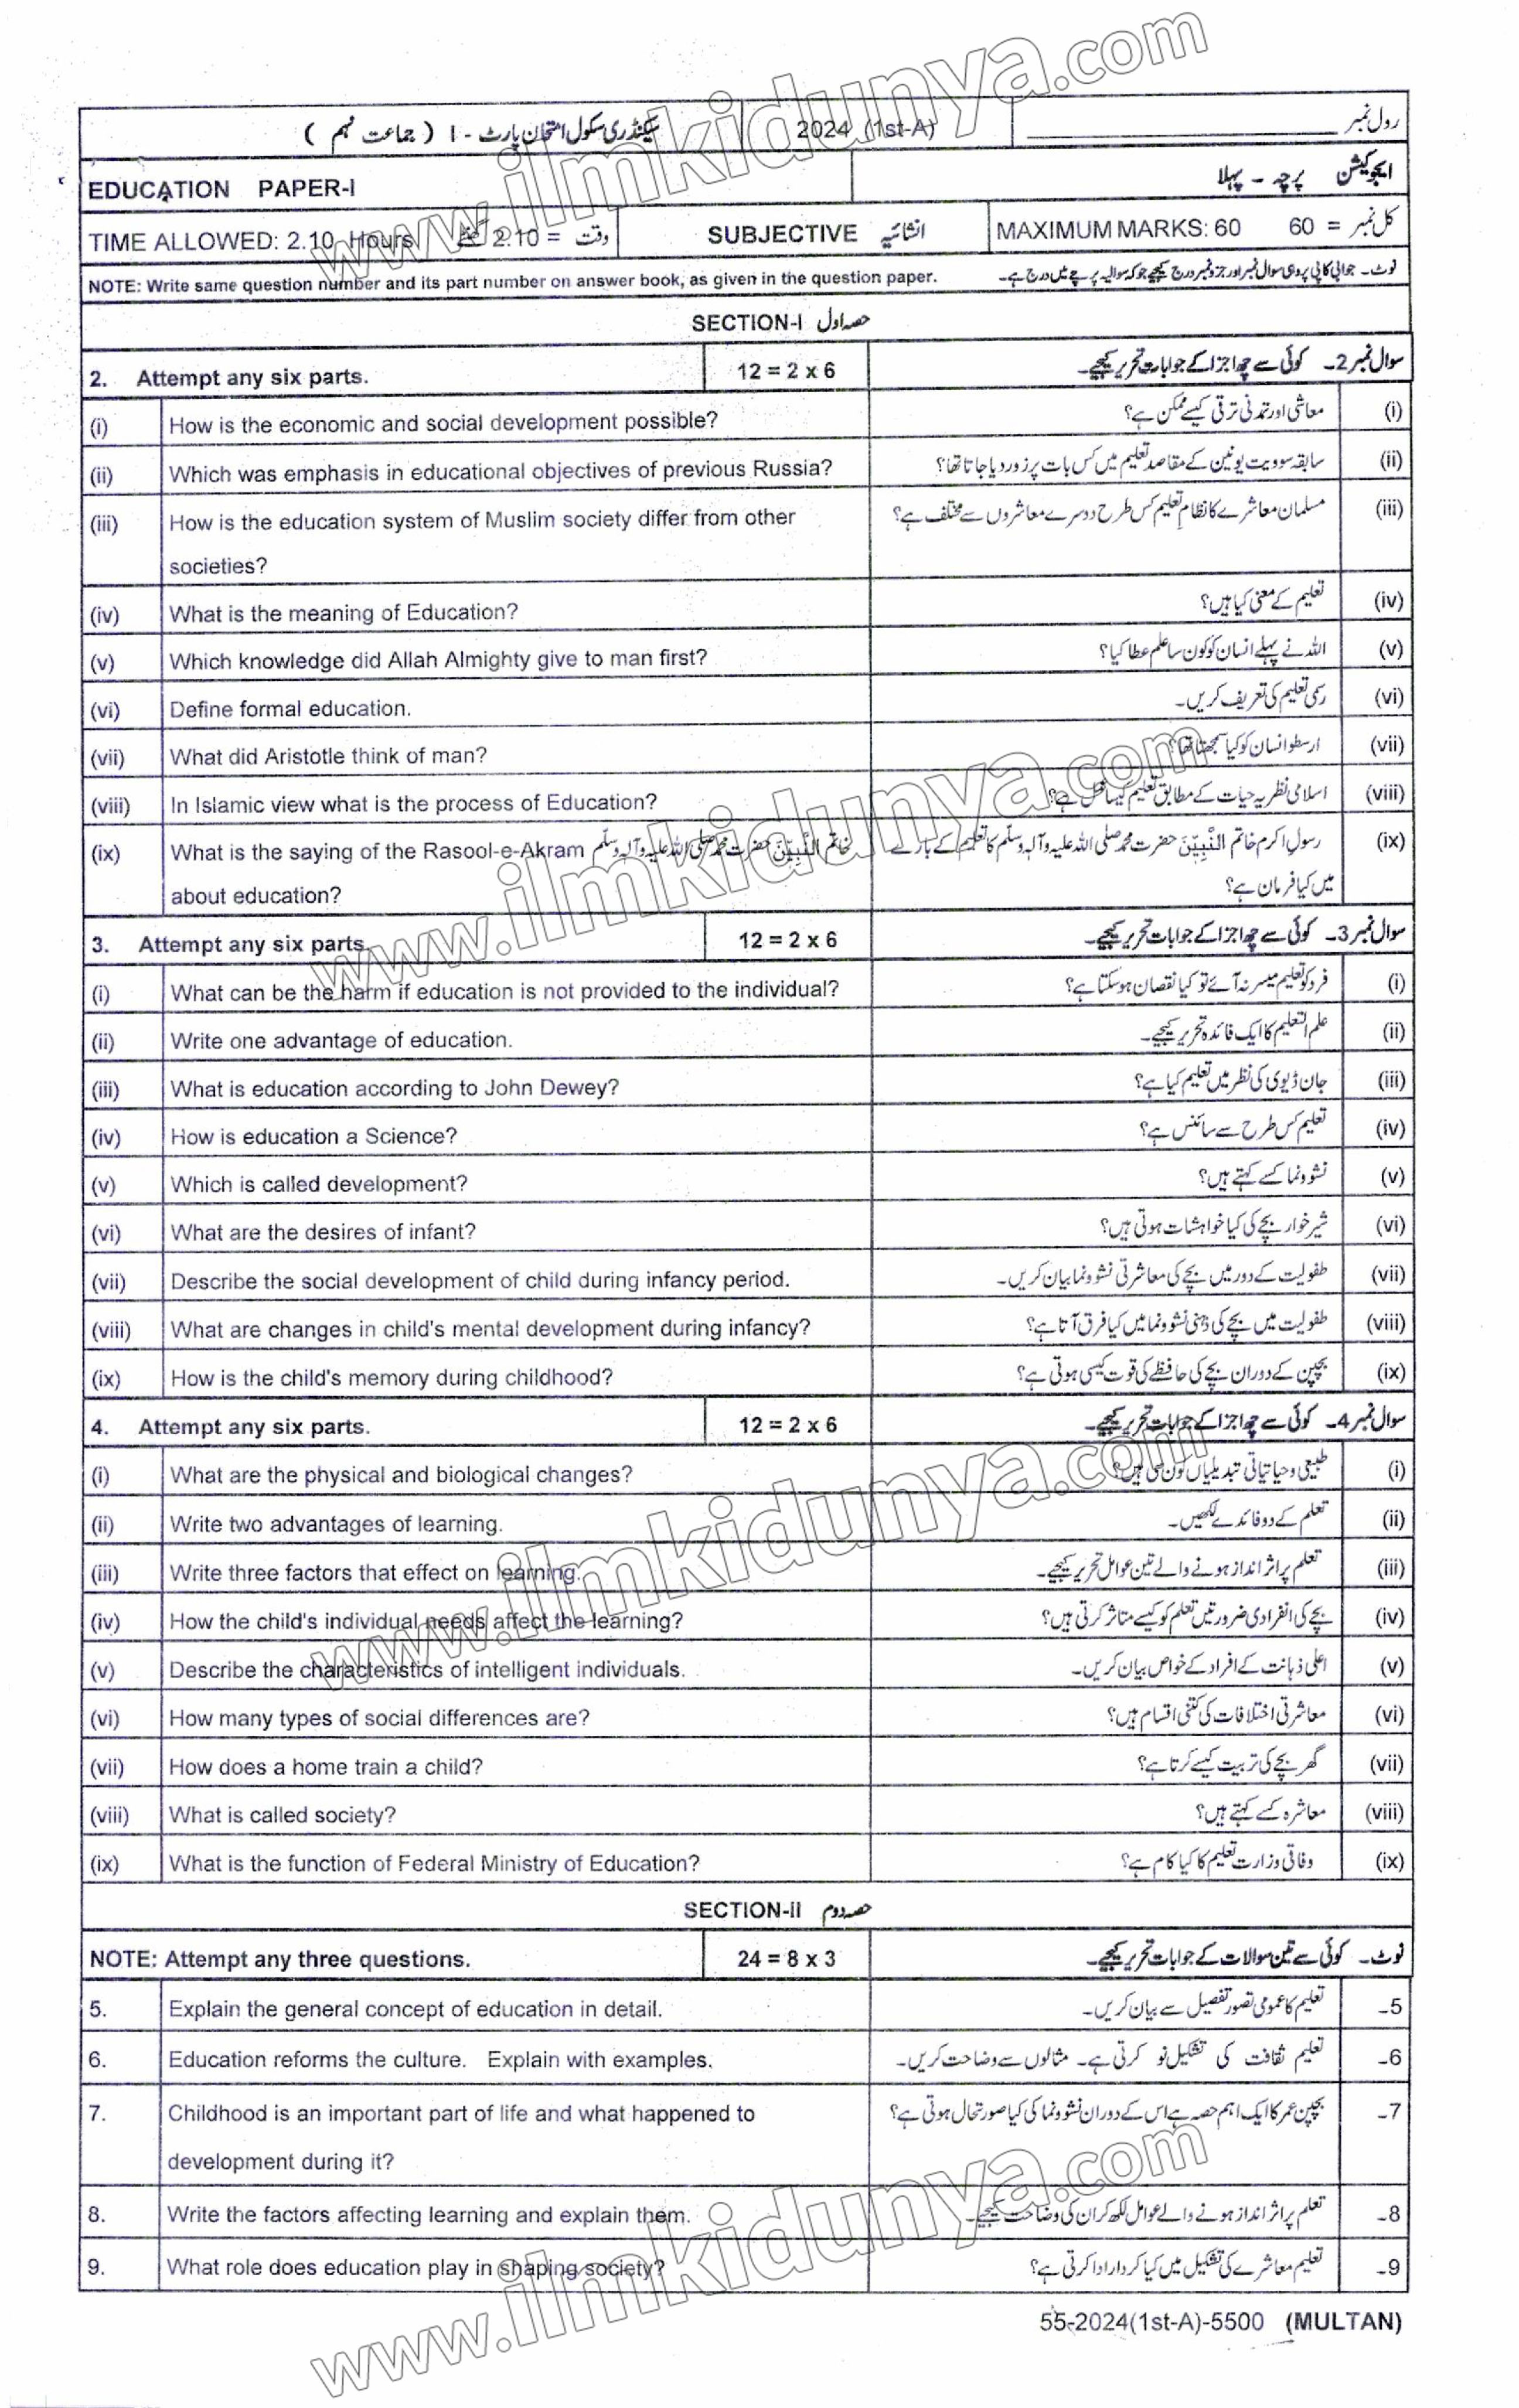 سیکنڈری سکول امتحان پارٹ - I ( جماعت نہم ) 2024 (1st-A) رول نمبر
EDUCATION PAPER-I ایجوکیشن پرچہ - پہلا
TIME ALLOWED: 2.10 Hours وقت = 2.10 گھنٹے SUBJECTIVE انشائیہ MAXIMUM MARKS: 60 کل نمبر = 60
NOTE: Write same question number and its part number on answer book, as given in the question paper. نوٹ۔ جوابی کاپی پر وہی سوال نمبر اور جز نمبر درج کیجیے جو کہ سوالیہ پرچے میں درج ہے۔
SECTION-I حصہ اول
2. Attempt any six parts. 12 = 2 x 6 سوال نمبر 2۔ کوئی سے چھ اجزا کے جوابات تحریر کیجیے۔
(i) How is the economic and social development possible? معاشی اور تمدنی ترقی کیسے ممکن ہے؟ (i)
(ii) Which was emphasis in educational objectives of previous Russia? سابقہ سوویت یونین کے مقاصد تعلیم میں کس بات پر زور دیا جاتا تھا؟ (ii)
(iii) How is the education system of Muslim society differ from other مسلمان معاشرے کا نظامِ تعلیم کس طرح دوسرے معاشروں سے مختلف ہے؟ (iii)
societies?
(iv) What is the meaning of Education? تعلیم کے معنی کیا ہیں؟ (iv)
(v) Which knowledge did Allah Almighty give to man first? اللہ نے پہلے انسان کو کون سا علم عطا کیا؟ (v)
(vi) Define formal education. رسمی تعلیم کی تعریف کریں۔ (vi)
(vii) What did Aristotle think of man? ارسطو انسان کو کیا سمجھتا تھا؟ (vii)
(viii) In Islamic view what is the process of Education? اسلامی نظریہ حیات کے مطابق تعلیم کیسا عمل ہے؟ (viii)
(ix) What is the saying of the Rasool-e-Akram خاتم النَّبِیّٖنَ حضرت محمد صلی اللہ علیہ وآلہ وسلّم رسولِ اکرم خاتم النَّبِیّٖنَ حضرت محمد صلی اللہ علیہ وآلہ وسلّم کا تعلیم کے بارے (ix)
about education? میں کیا فرمان ہے؟
3. Attempt any six parts. 12 = 2 x 6 سوال نمبر 3۔ کوئی سے چھ اجزا کے جوابات تحریر کیجیے۔
(i) What can be the harm if education is not provided to the individual? فرد کو تعلیم میسر نہ آئے تو کیا نقصان ہو سکتا ہے؟ (i)
(ii) Write one advantage of education. علم التعلیم کا ایک فائدہ تحریر کیجیے۔ (ii)
(iii) What is education according to John Dewey? جان ڈیوی کی نظر میں تعلیم کیا ہے؟ (iii)
(iv) How is education a Science? تعلیم کس طرح سے سائنس ہے؟ (iv)
(v) Which is called development? نشوونما کسے کہتے ہیں؟ (v)
(vi) What are the desires of infant? شیر خوار بچے کی کیا خواہشات ہوتی ہیں؟ (vi)
(vii) Describe the social development of child during infancy period. طفولیت کے دور میں بچے کی معاشرتی نشوونما بیان کریں۔ (vii)
(viii) What are changes in child's mental development during infancy? طفولیت میں بچے کی ذہنی نشوونما میں کیا فرق آتا ہے؟ (viii)
(ix) How is the child's memory during childhood? بچپن کے دوران بچے کی حافظے کی قوت کیسی ہوتی ہے؟ (ix)
4. Attempt any six parts. 12 = 2 x 6 سوال نمبر 4۔ کوئی سے چھ اجزا کے جوابات تحریر کیجیے۔
(i) What are the physical and biological changes? طبیعی و حیاتیاتی تبدیلیاں کون سی ہیں؟ (i)
(ii) Write two advantages of learning. تعلم کے دو فائدے لکھیں۔ (ii)
(iii) Write three factors that effect on learning. تعلم پر اثر انداز ہونے والے تین عوامل تحریر کیجیے۔ (iii)
(iv) How the child's individual needs affect the learning? بچے کی انفرادی ضرورتیں تعلم کو کیسے متاثر کرتی ہیں؟ (iv)
(v) Describe the characteristics of intelligent individuals. اعلیٰ ذہانت کے افراد کے خواص بیان کریں۔ (v)
(vi) How many types of social differences are? معاشرتی اختلافات کی کتنی اقسام ہیں؟ (vi)
(vii) How does a home train a child? گھر بچے کی تربیت کیسے کرتا ہے؟ (vii)
(viii) What is called society? معاشرہ کسے کہتے ہیں؟ (viii)
(ix) What is the function of Federal Ministry of Education? وفاقی وزارت تعلیم کا کیا کام ہے؟ (ix)
SECTION-II حصہ دوم
NOTE: Attempt any three questions. 24 = 8 x 3 نوٹ۔ کوئی سے تین سوالات کے جوابات تحریر کیجیے۔
5. Explain the general concept of education in detail. تعلیم کا عمومی تصور تفصیل سے بیان کریں۔ 5۔
6. Education reforms the culture. Explain with examples. تعلیم ثقافت کی تشکیل نو کرتی ہے۔ مثالوں سے وضاحت کریں۔ 6۔
7. Childhood is an important part of life and what happened to بچپن عمر کا ایک اہم حصہ ہے اس کے دوران نشوونما کی کیا صورتحال ہوتی ہے؟ 7۔
development during it?
8. Write the factors affecting learning and explain them. تعلم پر اثر انداز ہونے والے عوامل لکھ کر ان کی وضاحت کیجیے۔ 8۔
9. What role does education play in shaping society? تعلیم معاشرے کی تشکیل میں کیا کردار ادا کرتی ہے؟ 9۔
55-2024(1st-A)-5500 (MULTAN)
www.ilmkidunya.com
www.ilmkidunya.com
www.ilmkidunya.com
www.ilmkidunya.com